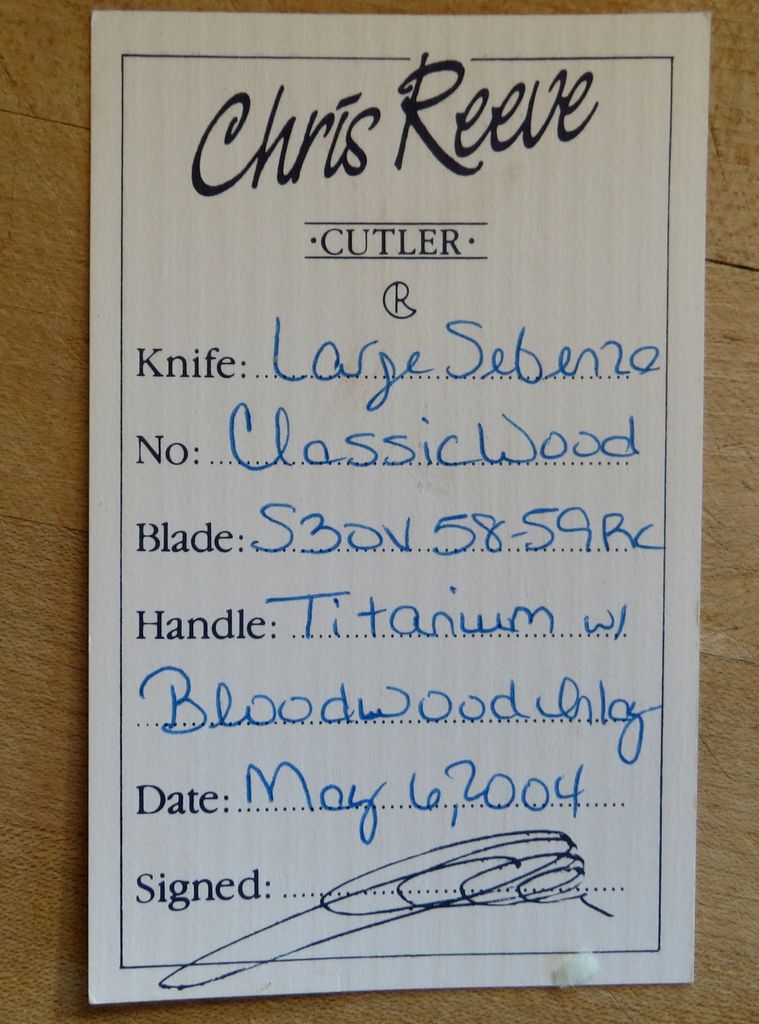 Chris Reeve
·CUTLER·
R
Knife: Large Sebenza
No: Classic Wood
Blade: S30V 58-59 Rc
Handle: Titanium w/
Bloodwood Inlay
Date: May 6, 2004
Signed: